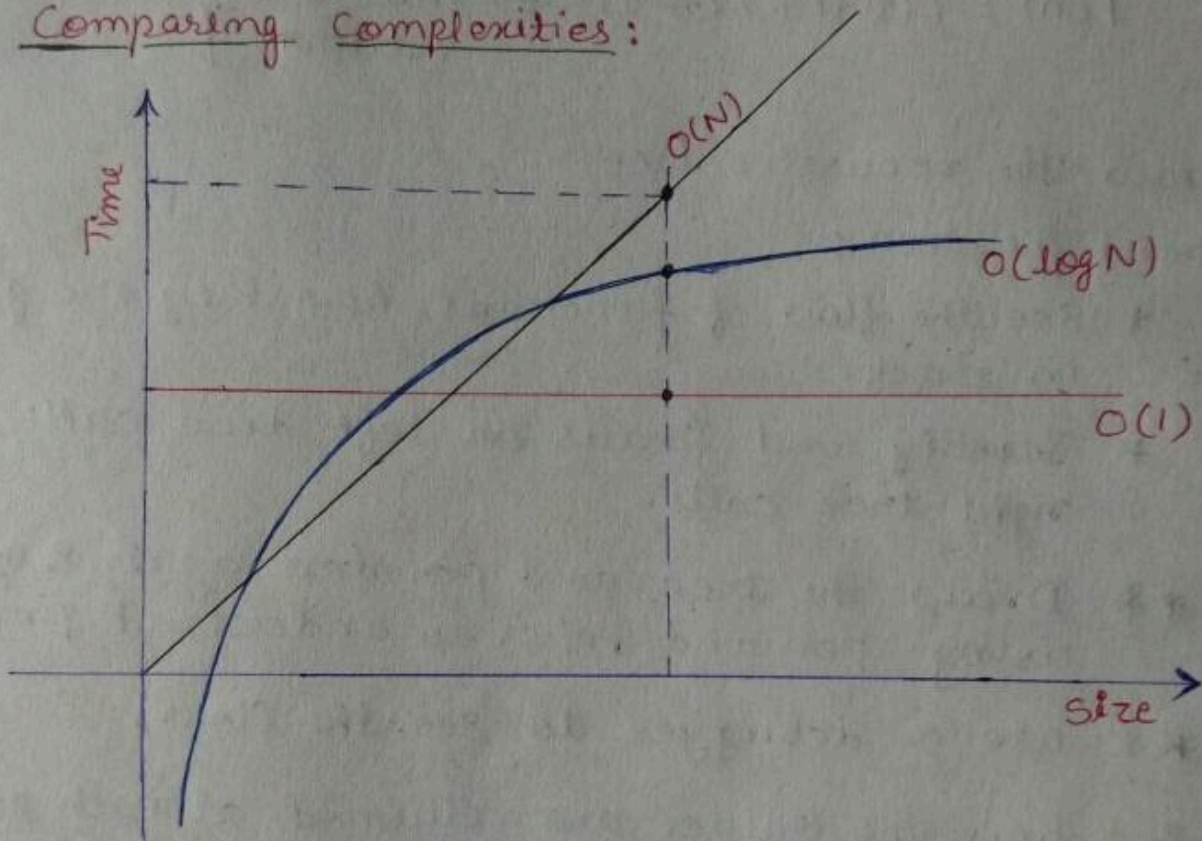 Comparing Complexities:
O(N)
Time
O(log N)
O(1)
Size